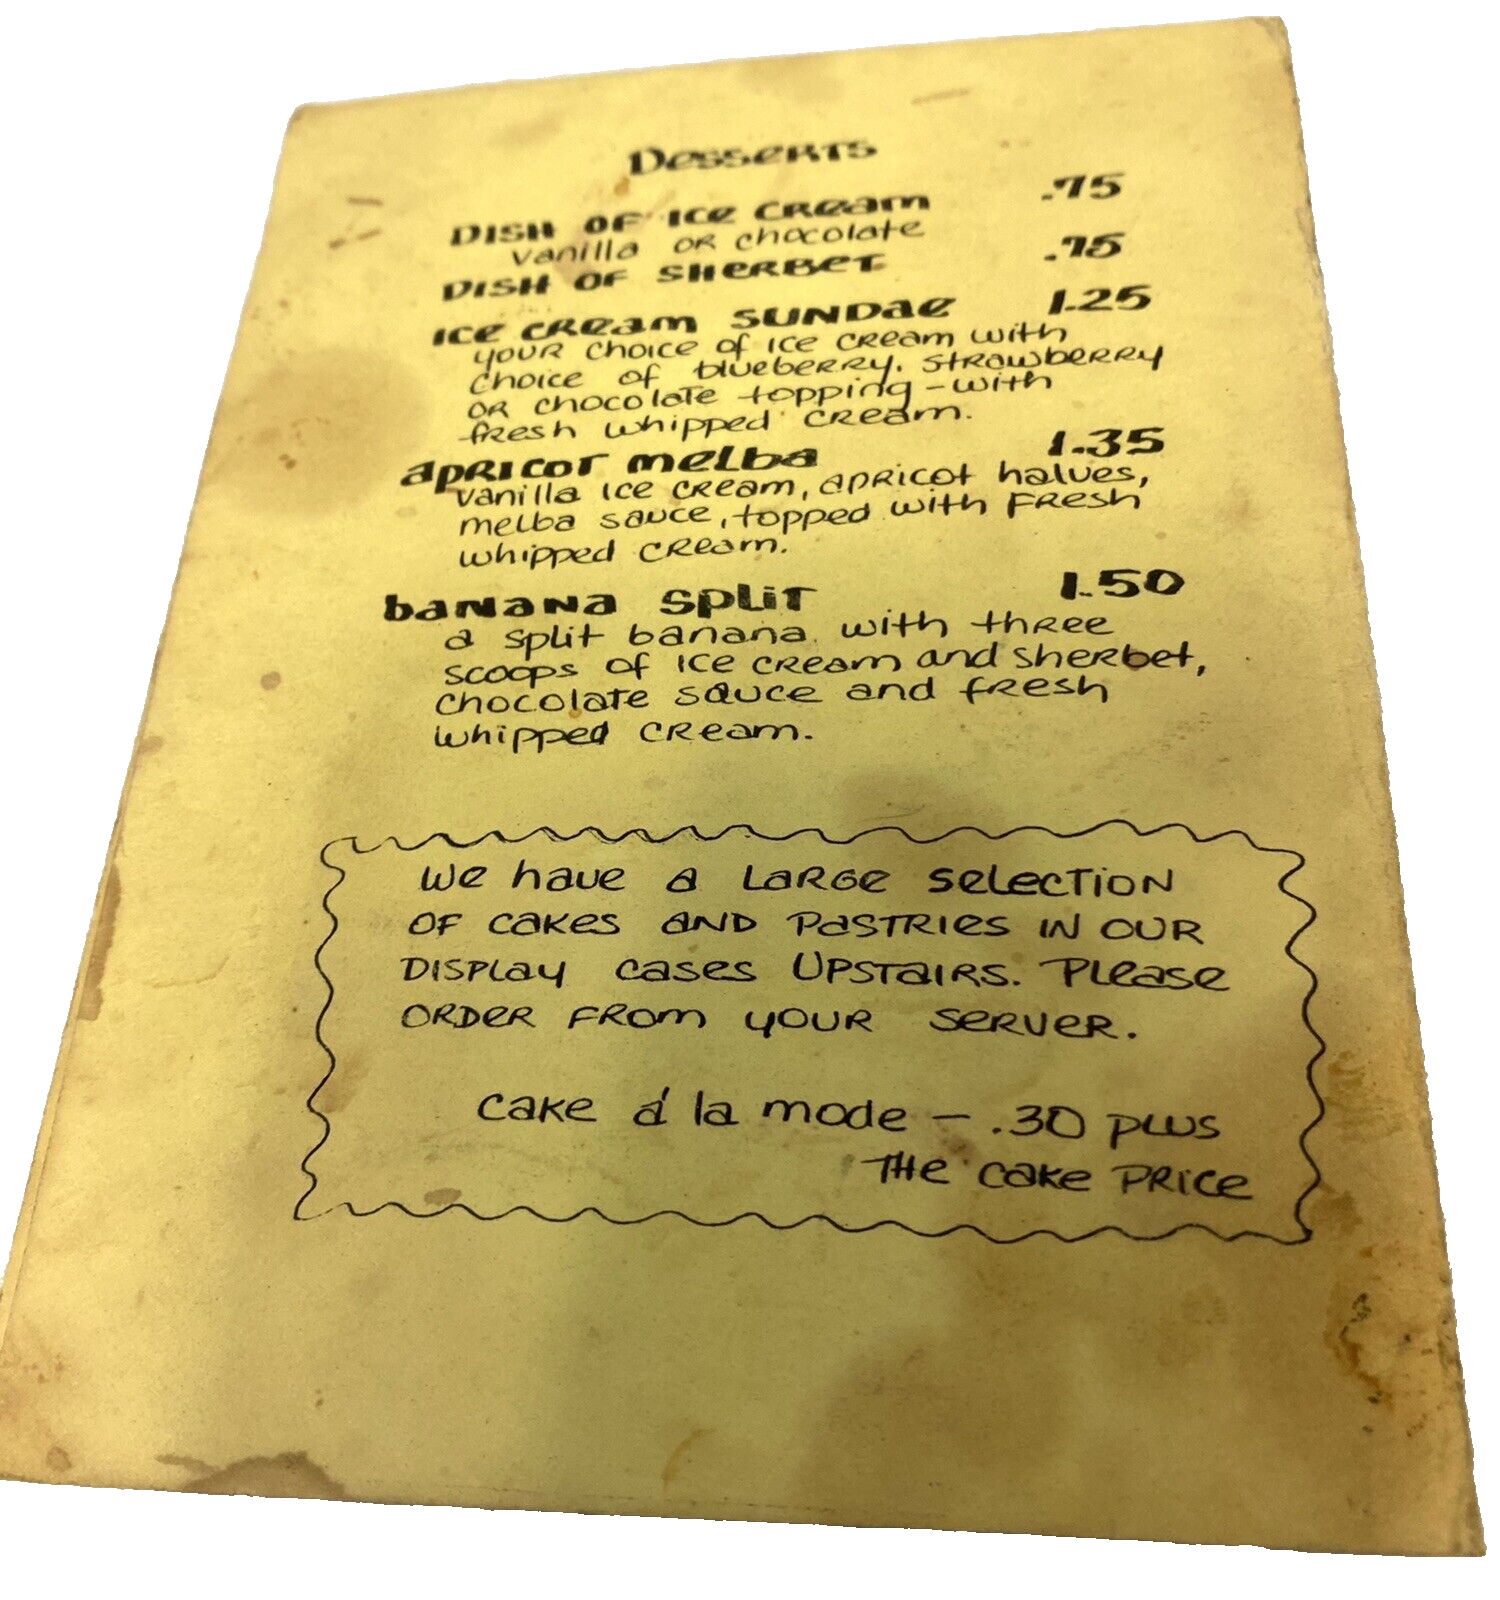 Desserts
Dish of Ice Cream .75
vanilla or chocolate
Dish of Sherbet .75
Ice Cream Sundae 1.25
your choice of ice cream with
choice of blueberry, strawberry
or chocolate topping - with
fresh whipped cream.
Apricot Melba 1.35
vanilla ice cream, apricot halves,
melba sauce, topped with fresh
whipped cream.
Banana Split 1.50
a split banana with three
scoops of ice cream and sherbet,
chocolate sauce and fresh
whipped cream.
We have a large selection
of cakes and pastries in our
display cases upstairs. Please
order from your server.
Cake á la mode - .30 plus
the cake price